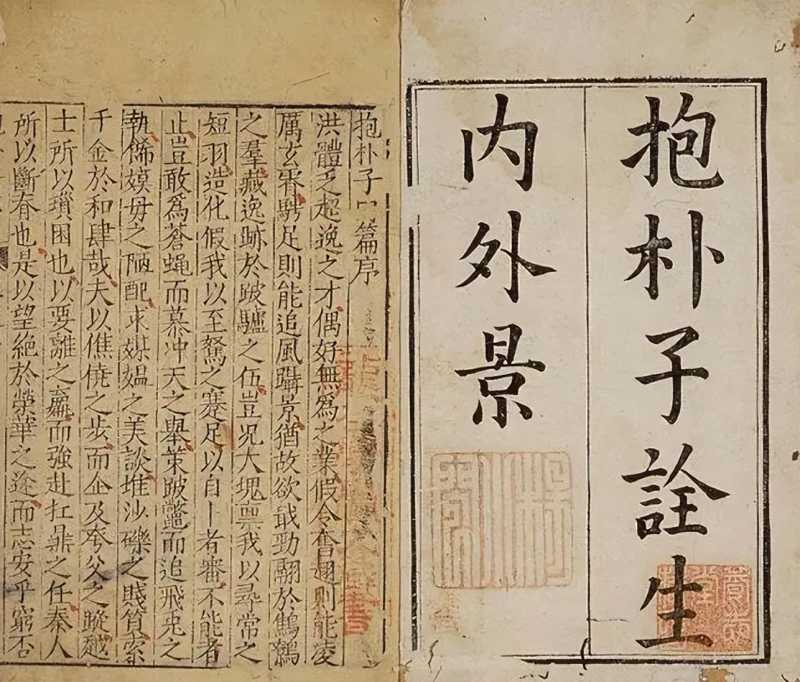 抱朴子詮生
内外景
抱朴子内篇序
洪體乏超逸之才偶好無為之業假令奮翅則能凌
厲玄霄騁足則能追風躡景猶故欲戢勁翮於鷦鷃
之羣藏逸跡於跛驢之伍豈況大塊禀我以尋常之
短羽造化假我以至駑之蹇足以自卜者審不能者
止豈敢為蒼蝇而慕冲天之舉策跛鼈而追飛兎之
軌飾嫫母之陋醜求媒媼之美談堆沙礫之賤質索
千金於和肆哉夫以僬僥之步而企及夸父之蹤越
士所以瑣困也以要離之羸而強赴扛鼎之任秦人
所以斷脊也是以望絕於榮華之途而志安乎窮否